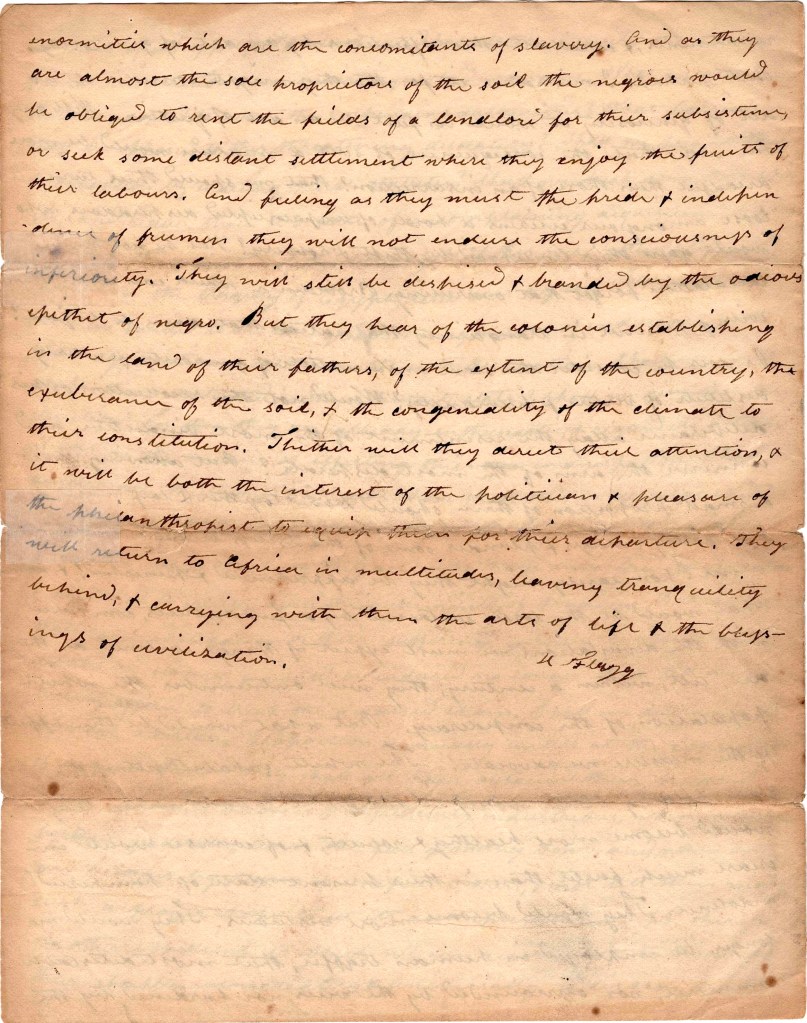 enormities which are the concomitants of slavery. And as they
are almost the sole proprietors of the soil the negroes would
be obliged to rent the fields of a landlord for their subsistence,
or seek some distant settlement where they enjoy the fruits of
their labours. And feeling as they must the pride & indepen
dence of freemen they will not endure the consciousness of
inferiority. They will still be despised & branded by the odious
epithet of negro. But they hear of the colonies establishing
in the land of their fathers, of the extent of the country, the
exuberance of the soil, & the congeniality of the climate to
their constitution. Thither will they direct their attention, &
it will be both the interest of the politician & pleasure of
the philanthropist to equip them for their departure. They
will return to Africa in multitudes, leaving tranquility
behind, & carrying with them the arts of life & the bless-
ings of civilization.
Flagg